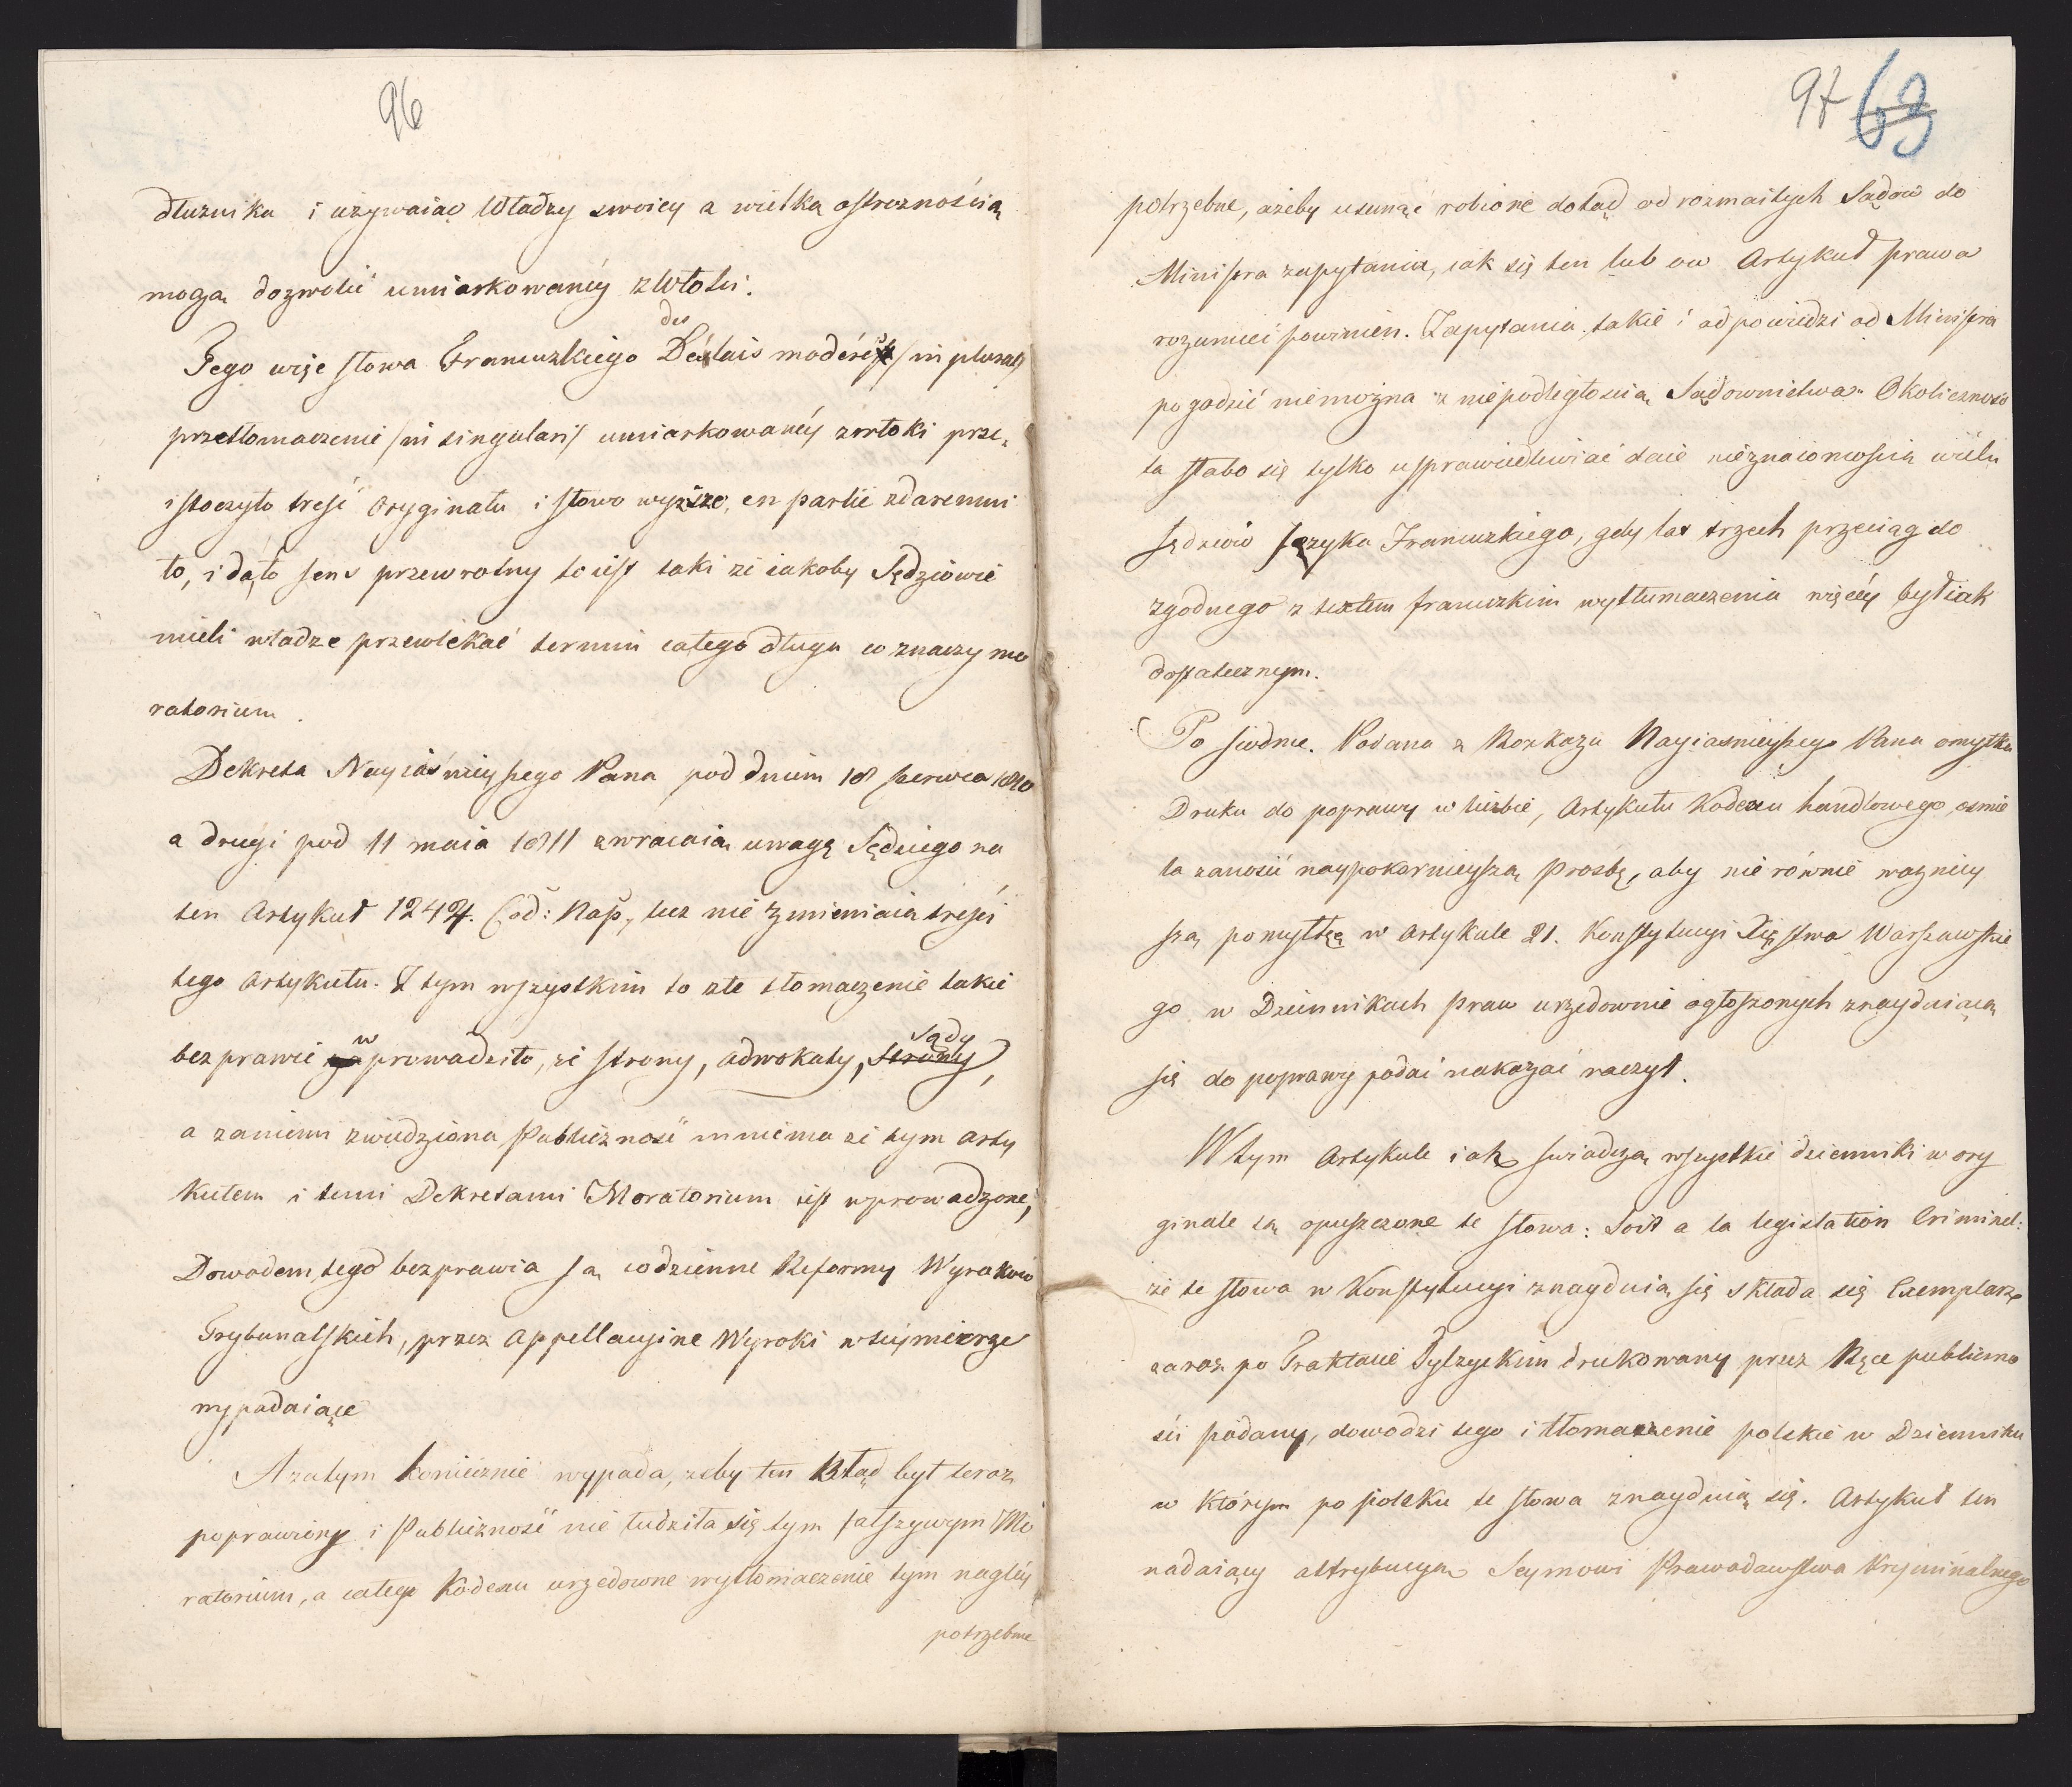 96
dłużnika i używaiąc Władzy swoiey a wielką ostrożnością
mogą dozwolić umiarkowaney zwłoki.
Tego więc słowa Francuzkiego des Délais modérés /in plurali/
przetłomaczenie /in singulari/ umiarkowaney zwłoki prze-
istoczyło treść Oryginału i słowo wyższe, en partie zdaremni
ło, i dało sens przewrotny to iest taki że iakoby Sędziowie
mieli władze przewlekać termin całego długu co znaczy mo
ratorium.
Dekreta Nayiaśnieyszego Pana pod dniem 18 czerwca 1810
a drugi pod 11 maia 1811 zwracaią uwagę Sędziego na
ten Artykuł 1244. Cod: Nap, lecz nie zmieniaią treści
tego Artykułu. Z tym wszystkim to złe tłomaczenie takie
bezprawie wprowadziło, że strony, adwokaty, Sądy,
a zaniemi zwiedziona Publiczność mniema że tym Arty
kułem i temi Dekretami Moratorium iest wprowadzone,
Dowodem tego bezprawia są codzienne Reformy Wyroków
Trybunalskich, przez Appellacyine Wyroki w tey mierze
wypadaiące
A zatym koniecznie wypada, żeby ten Błąd był teraz
poprawiony i Publiczność nie łudziła się tym fałszywym Mo
ratorium, a całego Kodexu urzędowne wytłomaczenie tym nagley
potrzebne
97 63
potrzebne, ażeby usunąć robione dotąd od rozmaitych Sądów do
Ministra zapytania, iak się ten lub ow Artykuł prawa
rozumieć powinien. Zapytania takie i odpowiedzi od Ministra
pogodzić nie można z niepodległością Sądownictwa. Okoliczność
ta słabo się tylko usprawiedliwiać daie nieznaiomością wielu
Sędziów Języka Francuzkiego, gdy lat trzech przeciąg do
zgodnego z textem francuzkim wytłumaczenia więcey był iak
dostatecznym.
Po siódme. Podana z Rozkazu Nayiasnieyszego Pana omyłka
Druku do poprawy w liczbie, Artykułu Kodexu handlowego, osmie
la zanosić naypokornieyszą prosbę, aby nie równie ważniey
szą pomyłkę w Artykule 21. Konstytucyi Xięstwa Warszawskie
go w Dziennikach praw urzędownie ogłoszonych znayduiącą
się do poprawy podać nakazać raczył.
W tym Artykule iako swiadczą wszystkie dzienniki w ory
ginale są opuszczone te słowa: Soit a la legislation Criminel:
że te słowa w Konstytucyi znayduią się składa się Exemplarz
zaraz po Traktacie Tylzyckim drukowany przez Ręce publiczno
ści podany, dowodzi tego i tłomaczenie polskie w Dzienniku
w którym po polsku te słowa znayduią się. Artykuł ten
nadaiący attrybucyą Seymowi Prawodawstwa kryminalnego